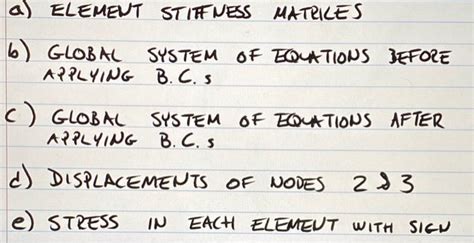 a) ELEMENT STIFFNESS MATRICES
b) GLOBAL SYSTEM OF EQUATIONS BEFORE
APPLYING B.C.s
c) GLOBAL SYSTEM OF EQUATIONS AFTER
APPLYING B.C.s
d) DISPLACEMENTS OF NODES 2 & 3
e) STRESS IN EACH ELEMENT WITH SIGN